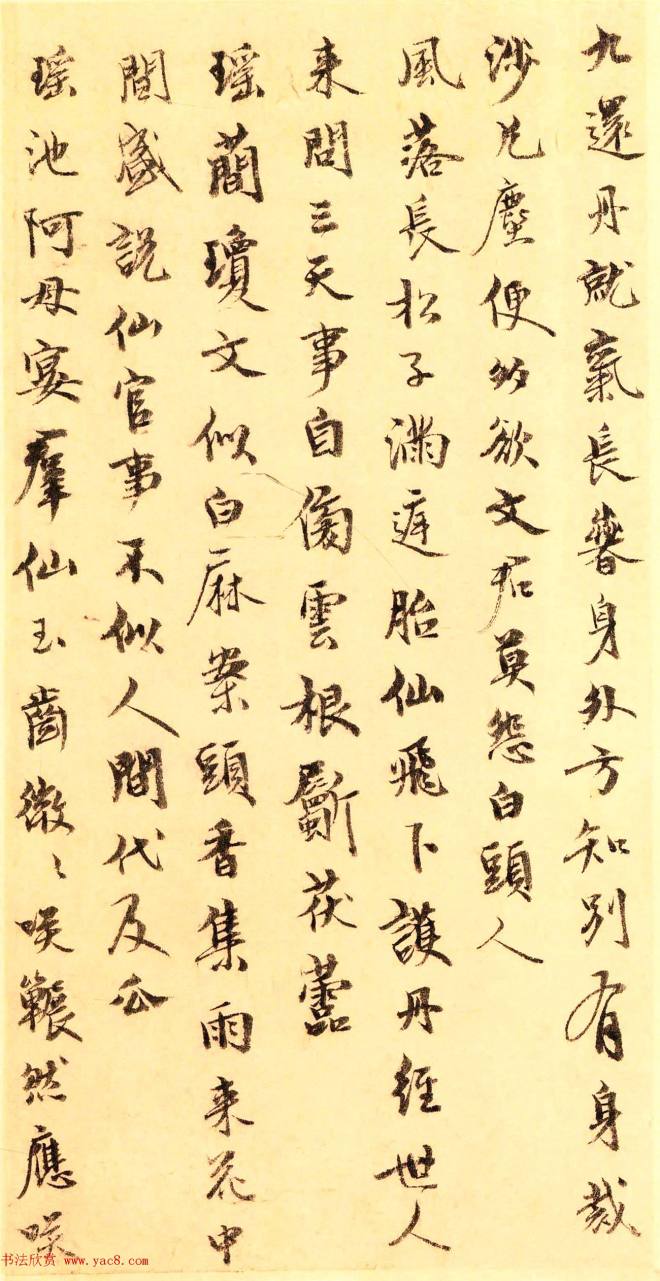 九還丹就氣長春身外方知別有身裁
涉凡塵便多欲文君莫怨白頭人
風落長松子滿庭胎仙飛下護丹經世人
来問三天事自雲根斸茯蘦
瑶簡瓊文似白麻案頭香集雨来花中
間盛說仙官事不似人間代及瓜
瑶池阿母宴羣仙玉齒微〻咲囅然應咲
书法欣赏 www.yac8.com